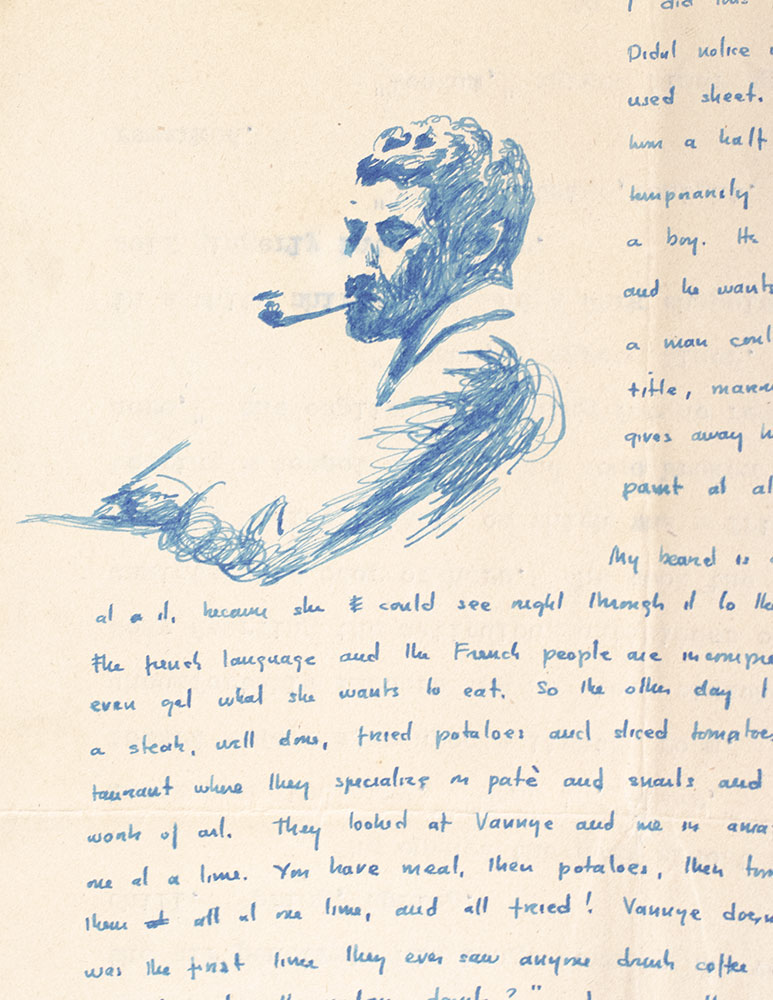 I did
Didnt notice
used sheet.
him a half
temporarily
a boy. He
and he wants
a man coul
title, marr
gives away h
paint at al
My beard is
at all, because she could see right through it to the
the french language and the French people are incompre
even get what she wants to eat. So the other day I
a steak, well done, fried potatoes and sliced tomatoes
taurant where they specialize in patè and snails and
work of art. They looked at Vannye and me in amaz
one at a time. You have meat, then potatoes, then tom
them all at one time, and all fried! Vannye doesn
was the first time they ever saw anyone drink coffee
drink?"